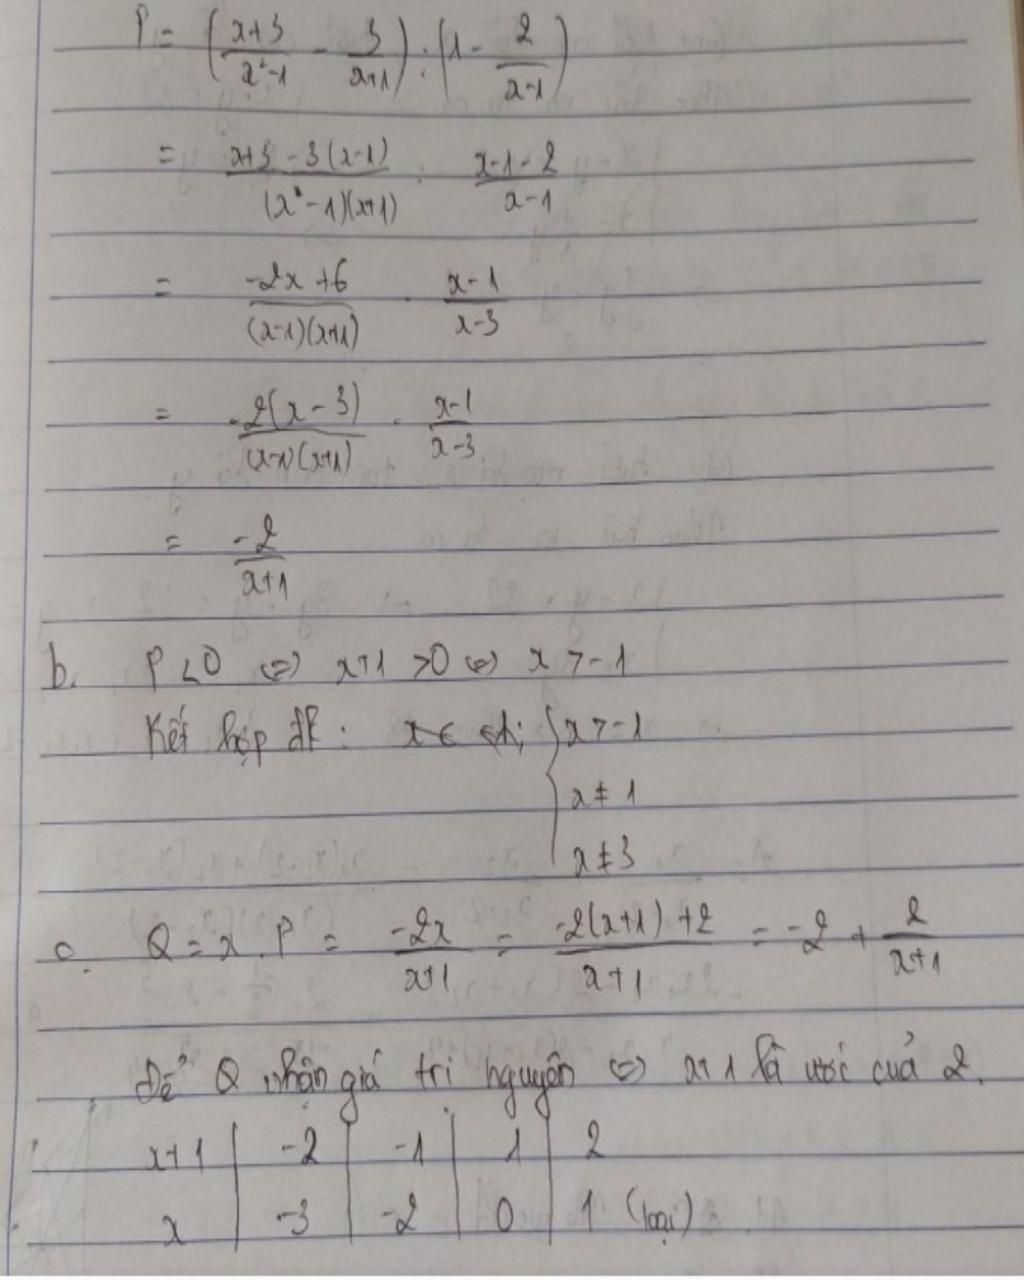 P = (x+3/x²-1 - 3/x+1) : (1 - 2/x-1)
= x+3-3(x-1)/(x²-1)(x+1) : x-1-2/x-1
= -2x+6/(x-1)(x+1) . x-1/x-3
= -2(x-3)/(x-1)(x+1) . x-1/x-3
= -2/x+1
b. P<0 ⇔ x+1 >0 ⇔ x >-1
Kết hợp đk : { x >-1
x ≠ 1
x ≠ 3
c. Q = x . P = -2x/x+1 = -2(x+1)+2/x+1 = -2 + 2/x+1
Để Q nhận giá trị nguyên ⇔ x+1 là ước của 2.
x+1 | -2 | -1 | 1 | 2
x | -3 | -2 | 0 | 1 (loại)